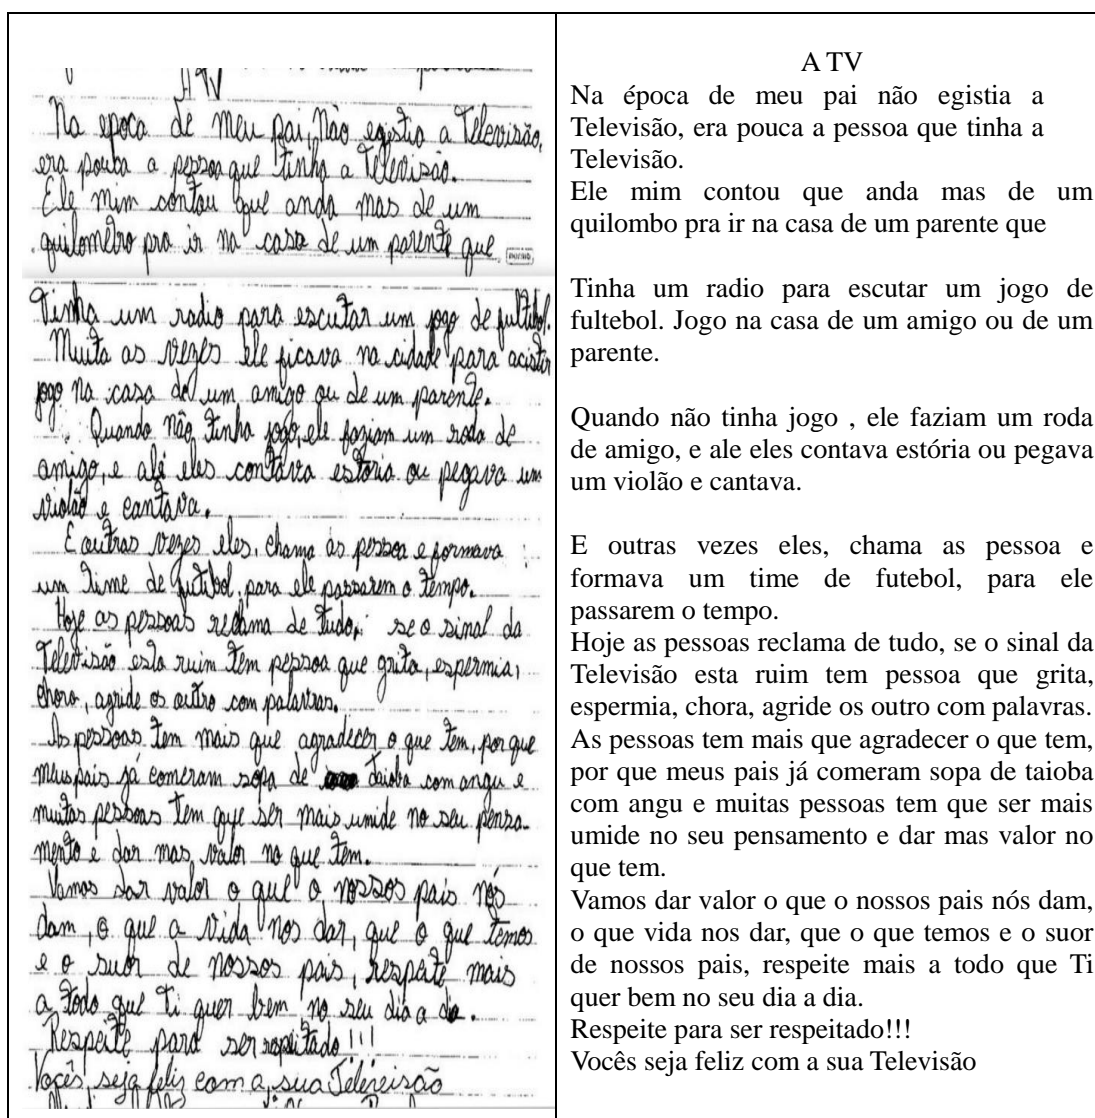 A TV
Na epoca de meu pai, não egistia a Televisão,
era pouca a pessoa que tinha a Televisão.
Ele mim contou que anda mas de um
quilometro pra ir na casa de um parente que
Tinha um radio para escutar um jogo de fultebol.
Muita as vezes ele ficava na cidade para acistir
jogo na casa de um amigo ou de um parente.
Quando não tinha jogo, ele faziam um roda de
amigo, e alé eles contava estoria ou pegava um
violão e cantava.
E outras vezes eles, chama as pessoa e formava
um time de futibol, para ele passarem o tempo.
Hoje as pessoas reclama de tudo, se o sinal da
Televisão esta ruim tem pessoa que grita, espermia,
chora, agride os outro com palavras.
As pessoas tem mais que agradecer o que tem, por que
meus pais já comeram sopa de taioba com angu e
muitas pessoas tem que ser mais umide no seu pensa-
mento e dar mas valor no que tem.
Vamos dar valor o que o nossos pais nós
dam, o que a vida nos dar, que o que temos
e o suor de nossos pais, respeite mais
a todo que ti quer bem no seu dia a dia.
Respeite para ser respeitado!!!
Vocês seja feliz com a sua Televisão
A TV
Na época de meu pai não egistia a
Televisão, era pouca a pessoa que tinha a
Televisão.
Ele mim contou que anda mas de um
quilombo pra ir na casa de um parente que
Tinha um radio para escutar um jogo de
fultebol. Jogo na casa de um amigo ou de um
parente.
Quando não tinha jogo , ele faziam um roda
de amigo, e ale eles contava estória ou pegava
um violão e cantava.
E outras vezes eles, chama as pessoa e
formava um time de futebol, para ele
passarem o tempo.
Hoje as pessoas reclama de tudo, se o sinal da
Televisão esta ruim tem pessoa que grita,
espermia, chora, agride os outro com palavras.
As pessoas tem mais que agradecer o que tem,
por que meus pais já comeram sopa de taioba
com angu e muitas pessoas tem que ser mais
umide no seu pensamento e dar mas valor no
que tem.
Vamos dar valor o que o nossos pais nós dam,
o que vida nos dar, que o que temos e o suor
de nossos pais, respeite mais a todo que Ti
quer bem no seu dia a dia.
Respeite para ser respeitado!!!
Vocês seja feliz com a sua Televisão